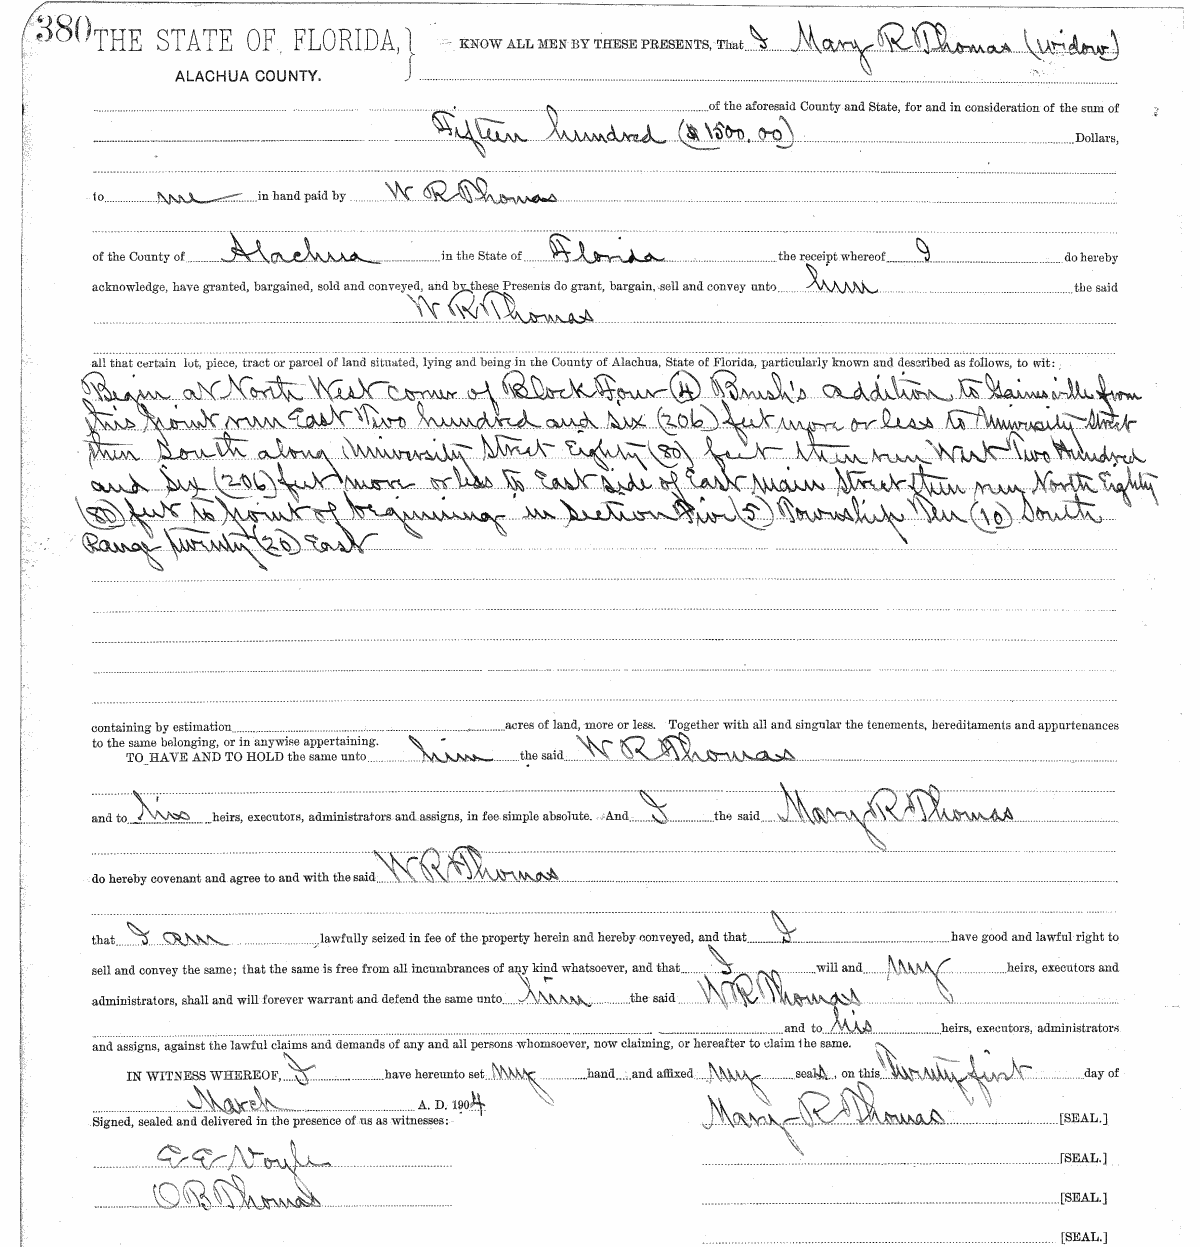 380
THE STATE OF FLORIDA,
ALACHUA COUNTY.
KNOW ALL MEN BY THESE PRESENTS, That I Mary R Thomas (widow)
of the aforesaid County and State, for and in consideration of the sum of
Fifteen hundred ($1500.00) Dollars,
to me in hand paid by W R Thomas
of the County of Alachua in the State of Florida the receipt whereof I do hereby
acknowledge, have granted, bargained, sold and conveyed, and by these Presents do grant, bargain, sell and convey unto him the said
W R Thomas
all that certain lot, piece, tract or parcel of land situated, lying and being in the County of Alachua, State of Florida, particularly known and described as follows, to wit:
Begin at North West corner of Block Four (4) Brush's addition to Gainsville from
this point run East Two hundred and six (206) feet more or less to University Street
then South along University Street Eighty (80) feet then run West Two Hundred
and six (206) feet more or less to East side of East Main Street then run North Eighty
(80) feet to point of beginning in Section Five (5) Township Ten (10) South
Range Twenty (20) East
containing by estimation acres of land, more or less. Together with all and singular the tenements, hereditaments and appurtenances
to the same belonging, or in anywise appertaining.
TO HAVE AND TO HOLD the same unto him the said W R Thomas
and to his heirs, executors, administrators and assigns, in fee simple absolute. And I the said Mary R Thomas
do hereby covenant and agree to and with the said W R Thomas
that I am lawfully seized in fee of the property herein and hereby conveyed, and that I have good and lawful right to
sell and convey the same; that the same is free from all incumbrances of any kind whatsoever, and that I will and my heirs, executors and
administrators, shall and will forever warrant and defend the same unto him the said W R Thomas
and to his heirs, executors, administrators
and assigns, against the lawful claims and demands of any and all persons whomsoever, now claiming, or hereafter to claim the same.
IN WITNESS WHEREOF, I have hereunto set my hand and affixed my seal, on this Twenty first day of
March A. D. 1904 Mary R Thomas [SEAL.]
Signed, sealed and delivered in the presence of us as witnesses:
E E Voyle [SEAL.]
O B Thomas [SEAL.]
[SEAL.]